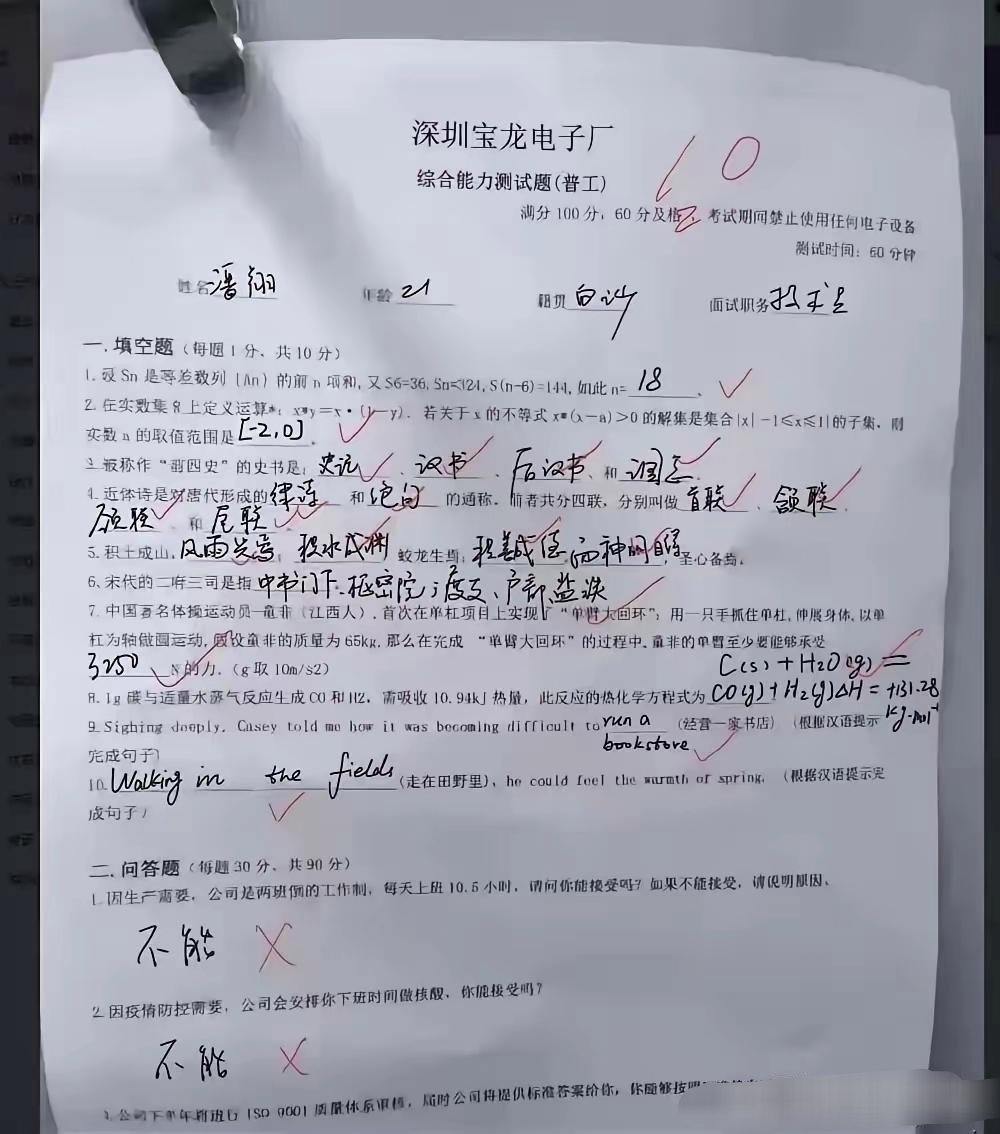 深圳宝龙电子厂
10
综合能力测试题(普工)
满分100分，60分及格，考试期间禁止使用任何电子设备
测试时间：60分钟
姓名潘翔 年龄21 面试职务技术员
一.填空题（每题1分、共10分）
1.设Sn是等差数列{An}的前n项和,又S6=36,Sn=324,S(n-6)=144,如此n=18
2.在实数集R上定义运算*：x*y=x·(1-y)．若关于x的不等式x*(x-a)>0的解集是集合{x|-1≤x≤1}的子集、则
实数a的取值范围是[-2,0]。
3.被称作“前四史”的史书是：史记、汉书、后汉书、和三国志
4.近体诗是对唐代形成的律诗和绝句的通称。前者共分四联，分别叫做首联、颔联、
颈联、和尾联。
5.积土成山,风雨兴焉；积水成渊 蛟龙生焉；积善成德,而神明自得,圣心备焉。
6、宋代的二府三司是指中书门下、枢密院；度支、户部、盐铁
7.中国著名体操运动员童非（江西人）,首次在单杠项目上实现了“单臂大回环”：用一只手抓住单杠,伸展身体,以单
杠为轴做圆运动,假设童非的质量为65kg,那么在完成“单臂大回环”的过程中,童非的单臂至少要能够承受
3250 N的力.（g取10m/s2）
8.1g碳与适量水蒸气反应生成CO和H2，需吸收10.94kJ热量，此反应的热化学方程式为C(s)+H2O(g)=
CO(g)+H2(g)ΔH=+131.28
kg·mol⁻¹
9.Sighing deeply, Casey told me how it was becoming difficult to run a bookstore（经营一家书店）（根据汉语提示
完成句子）
10.Walking in the fields(走在田野里), he could feel the warmth of spring.（根据汉语提示完
成句子）
二.问答题（每题30分、共90分）
1.因生产需要，公司是两班倒的工作制，每天上班10.5小时，请问你能接受吗？如果不能接受，请说明原因、
不能
2.因疫情防控需要，公司会安排你下班时间做核酸、你能接受吗？
不能
3.公司下半年将进行ISO 9001质量体系审核，届时公司将提供标准答案给你，你能够按照